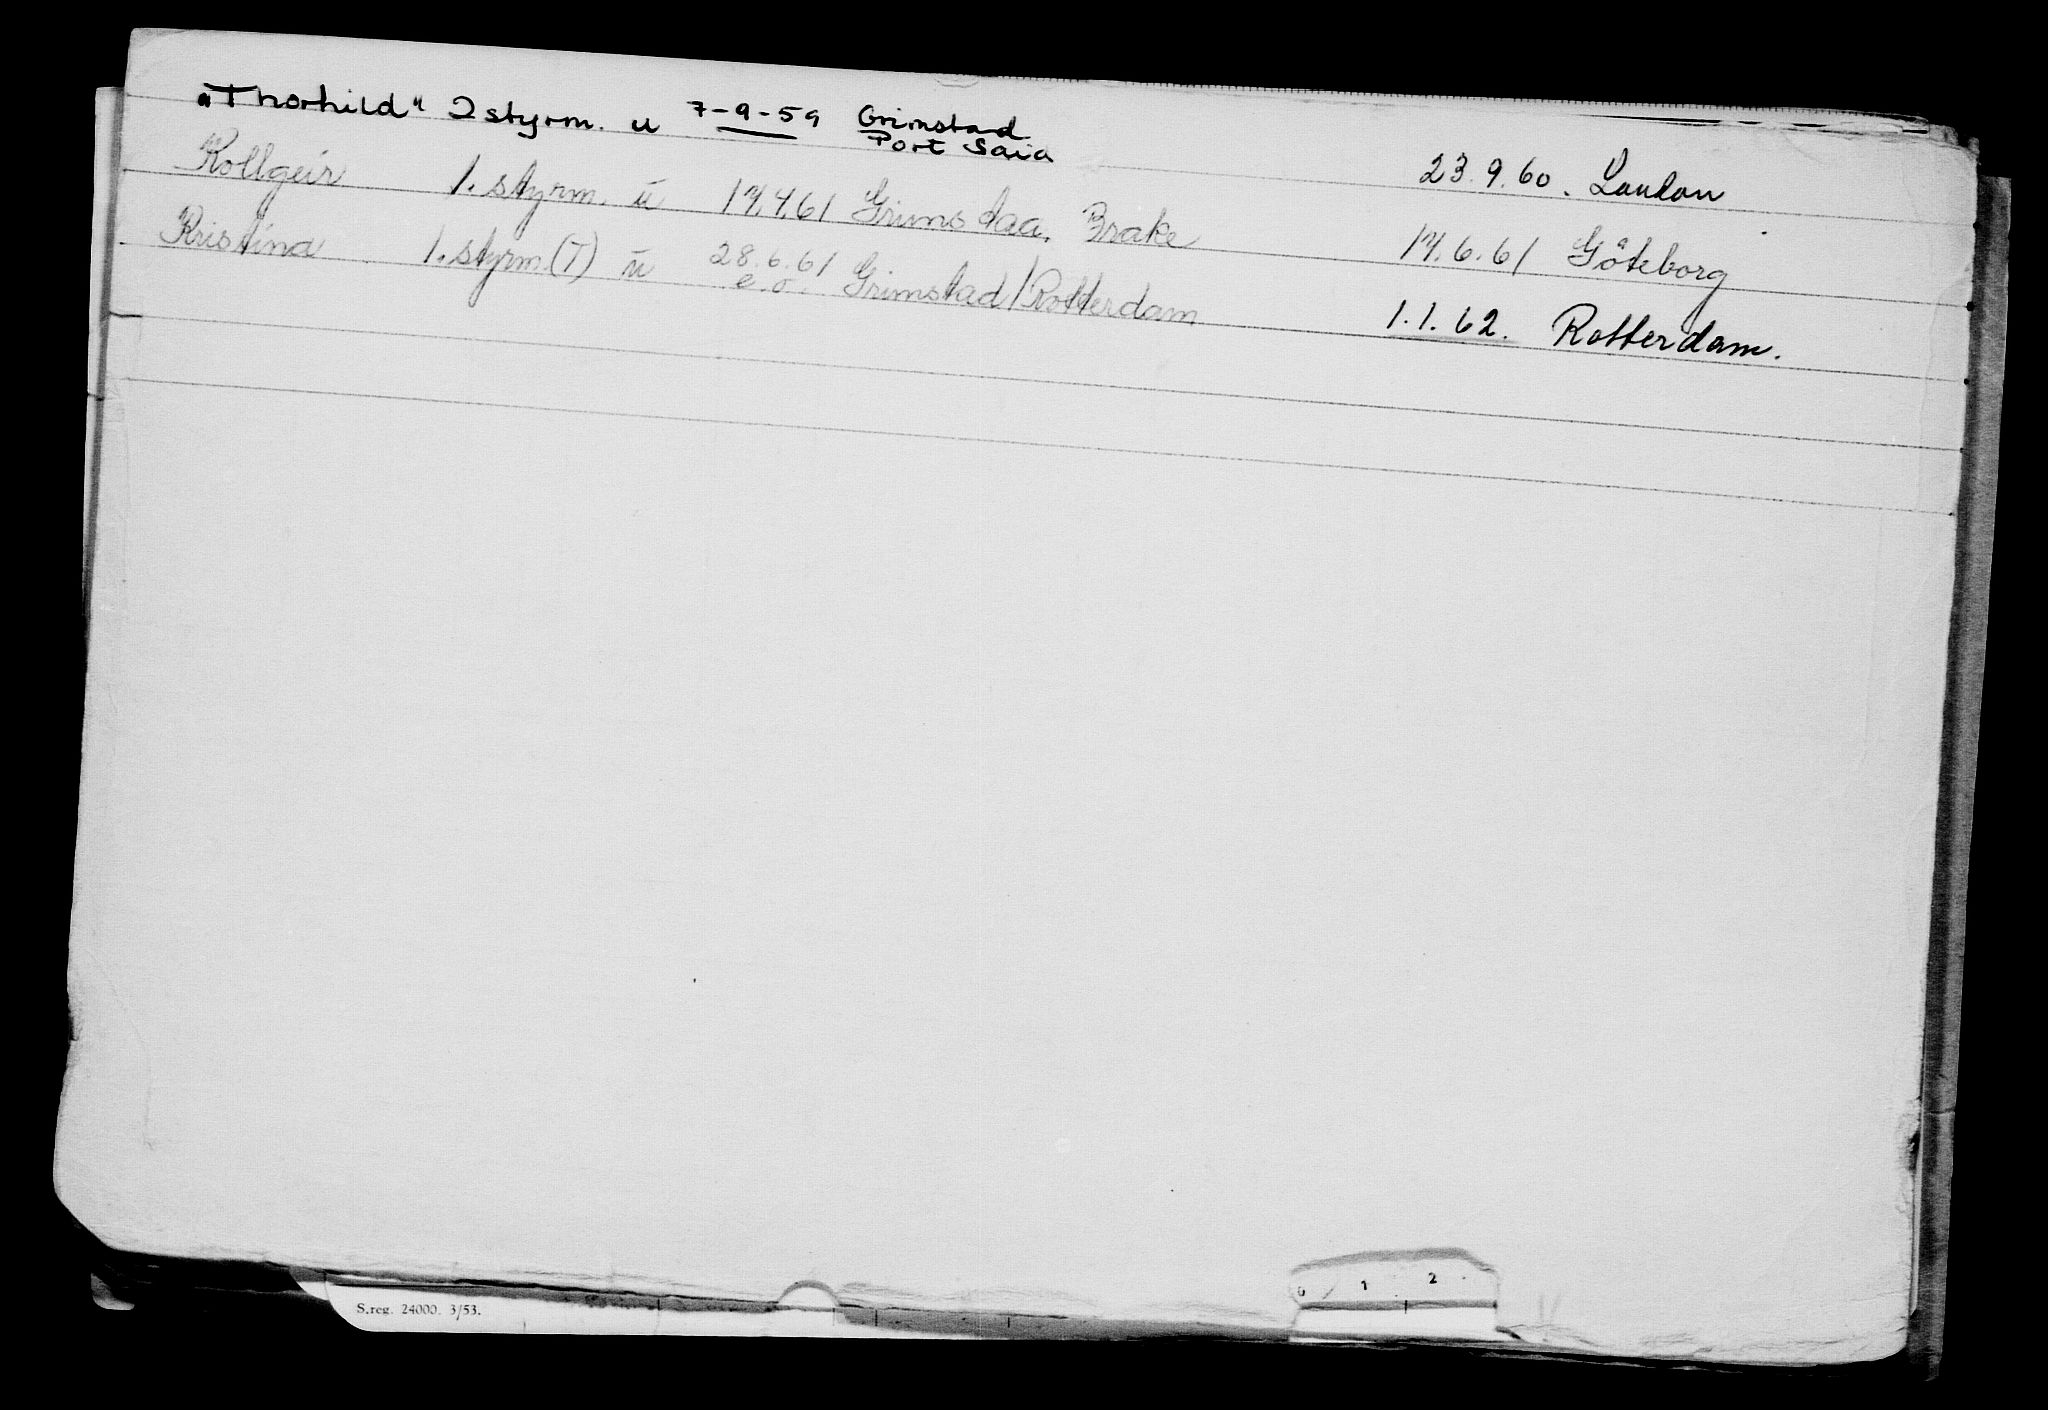 "Thorhild" 2 styrm. u 7-9-59 Grimstad Port Said 23.9.60. London
Kollgeir 1. styrm. u 17.4.61 Grimstad, Brake 17.6.61 Göteborg
Kristina 1. styrm.(T) u 28.6.61 e.o. Grimstad/Rotterdam 1.1.62. Rotterdam.
S.reg. 24000. 3/53.
0 1 2